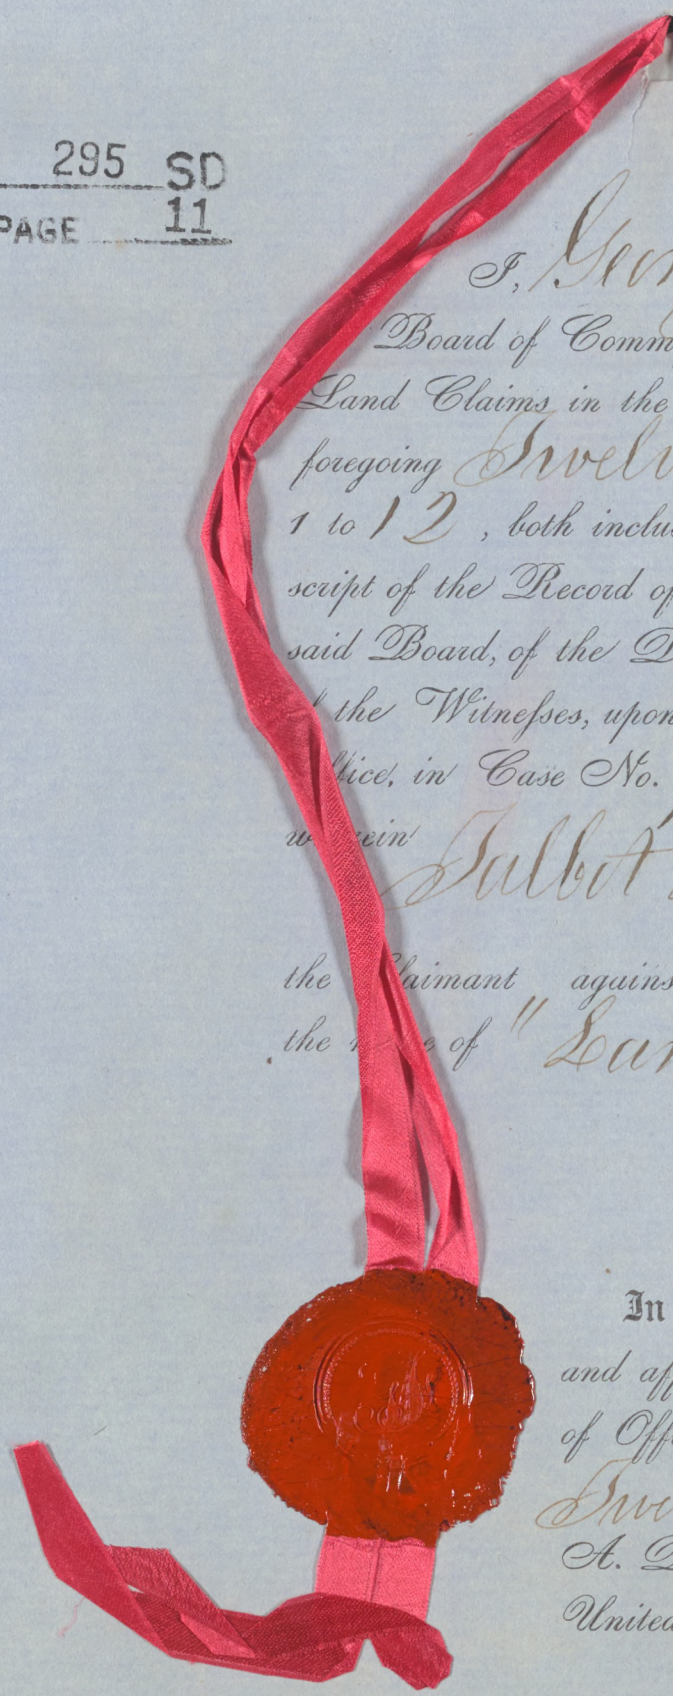 295 SD
PAGE 11
I, Geor
Board of Comm
Land Claims in the
foregoing Twelv
1 to 12, both inclu
script of the Record of
said Board, of the D
the Witnesses, upon
fice, in Case No.
w rein
Talbot
the laimant agains
the of "Lan
In
and aff
of Offi
Twe
A. D
United